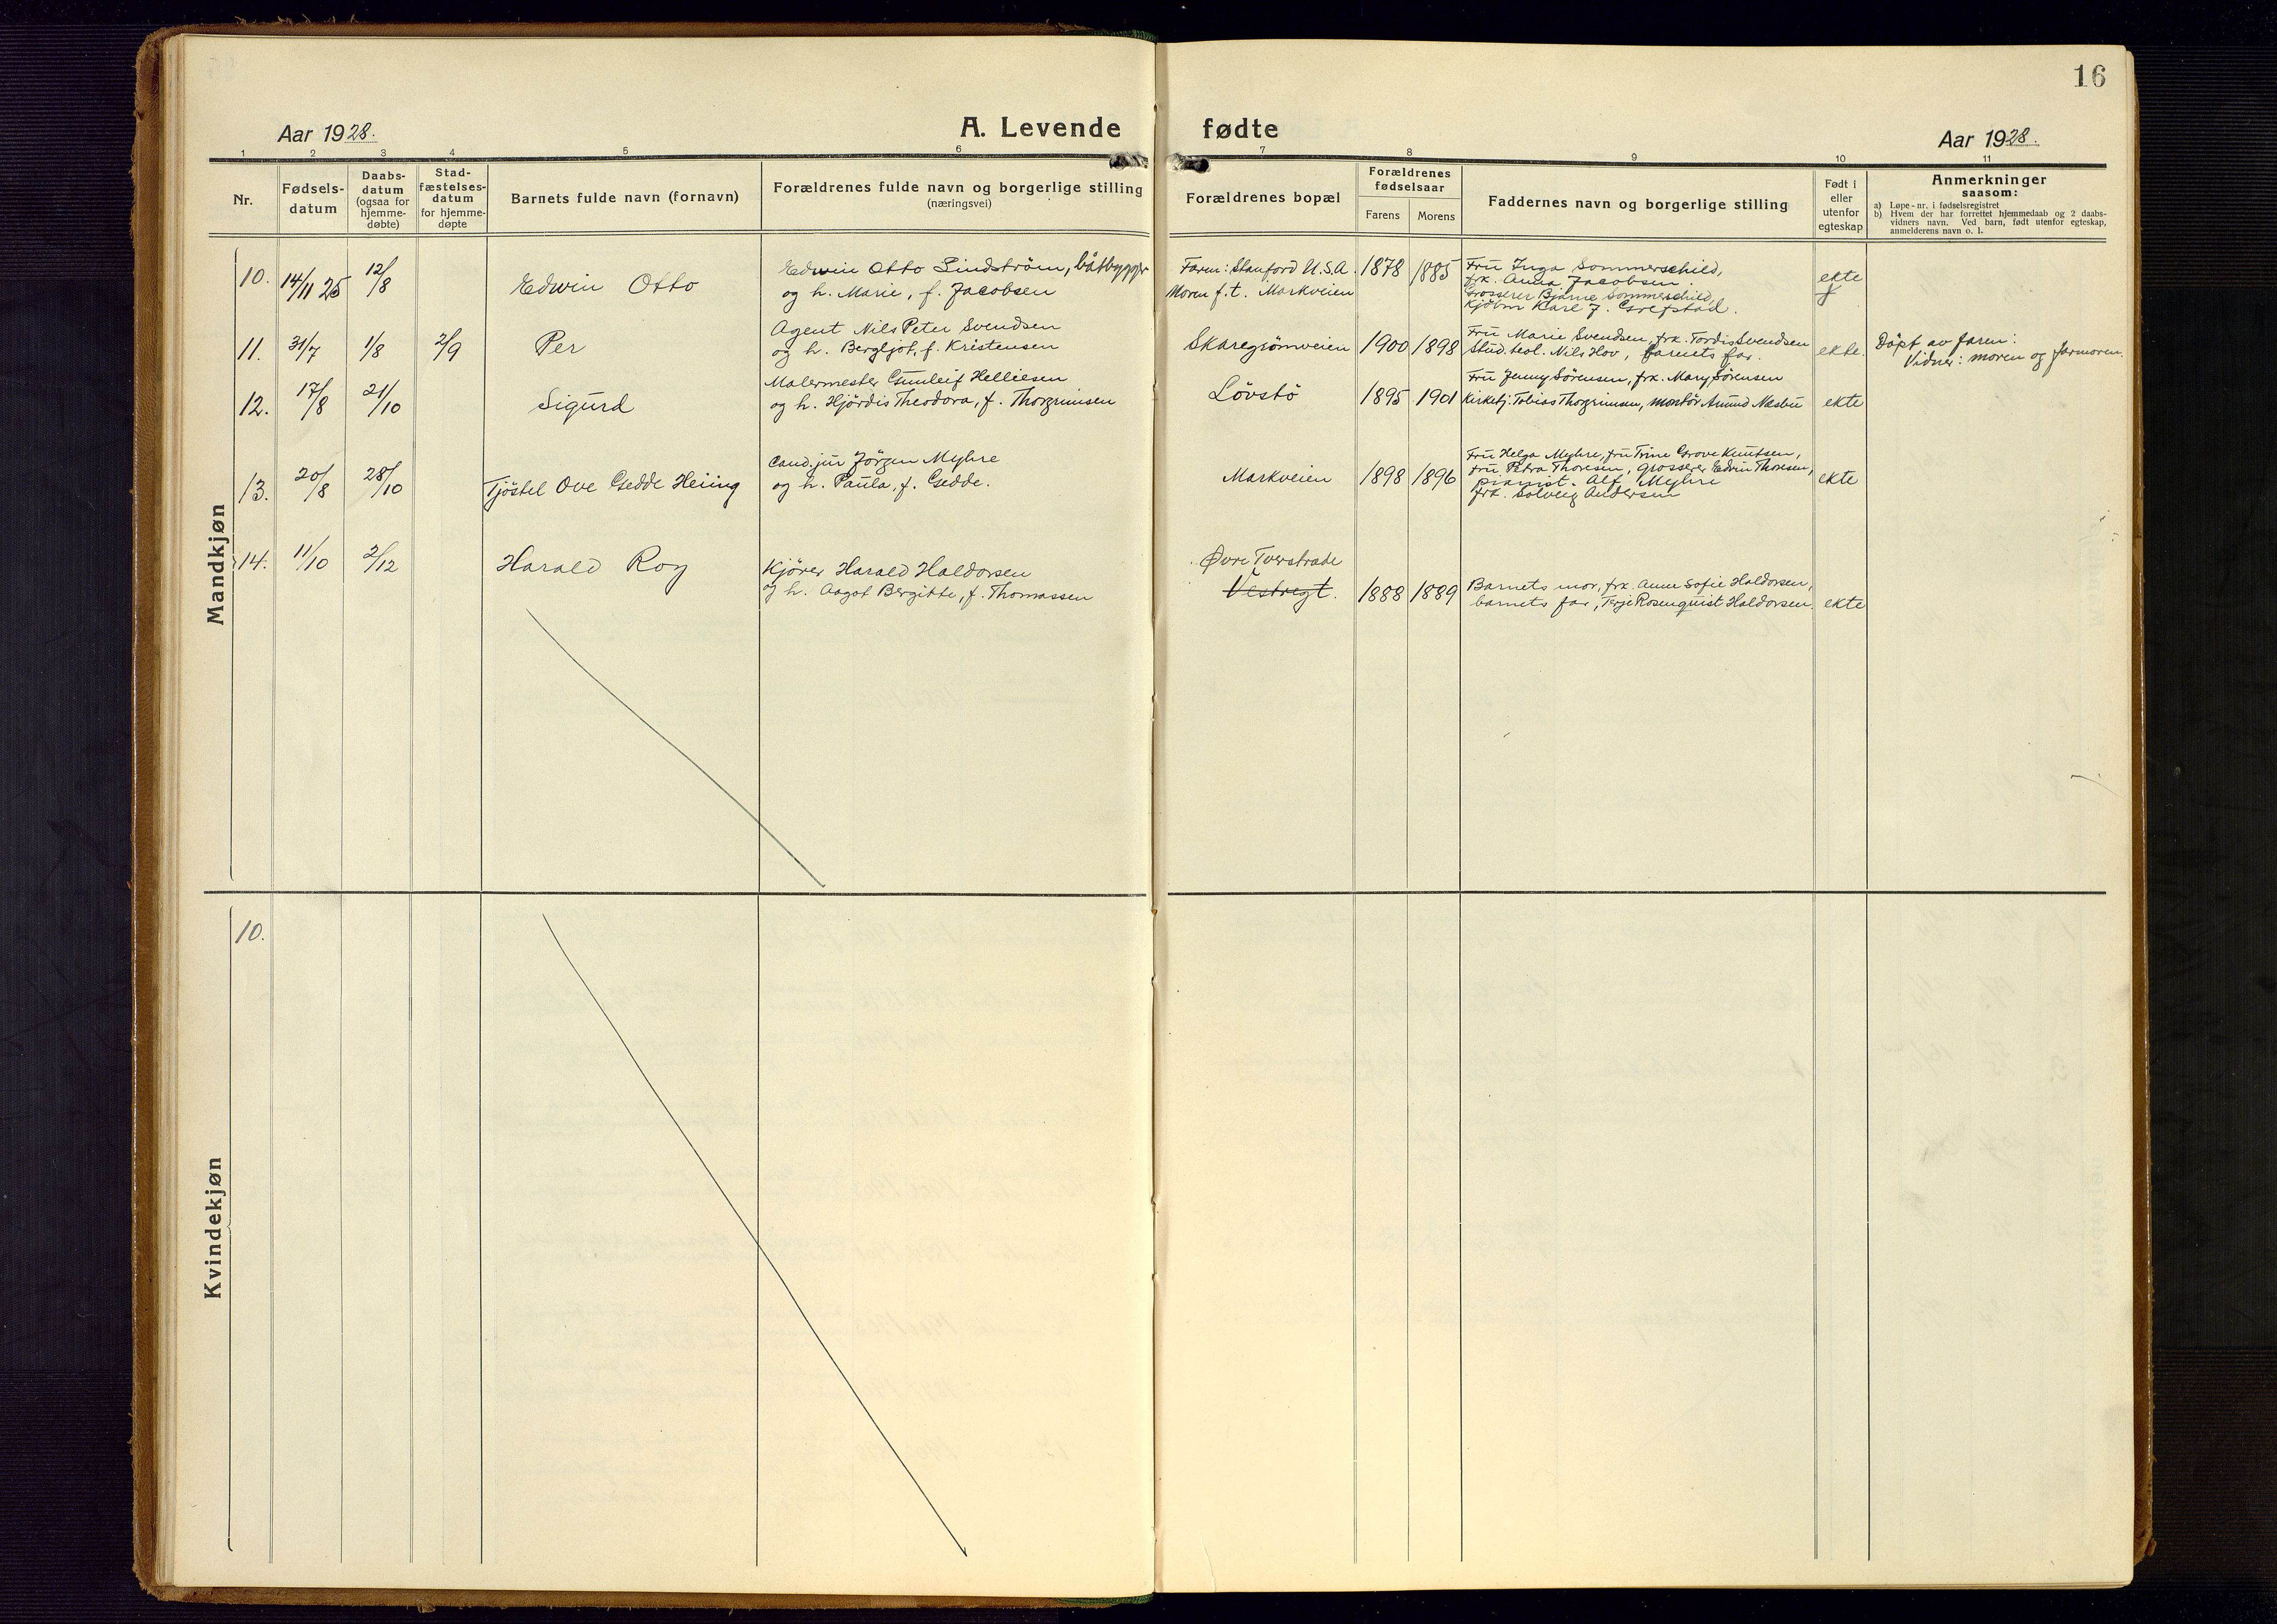 16
Aar 1928.
A. Levende fødte
Aar 1928.
1 2 3 4 5 6 7 8 9 10 11
Nr.
Fødsels-
datum
Daabs-
datum
(ogsaa for
hjemme-
døbte)
Stad-
fæstelses-
datum
for hjemme-
døpte
Barnets fulde navn (fornavn)
Forældrenes fulde navn og borgerlige stilling
(næringsvei)
Forældrenes bopæl
Forældrenes
fødselsaar
Farens Morens
Faddernes navn og borgerlige stilling
Født i
eller
utenfor
egteskap
Anmerkninger
saasom:
a) Løpe-nr. i fødselsregistret
b) Hvem der har forrettet hjemmedaab og 2 daabs-
vidners navn. Ved barn, født utenfor egteskap,
anmelderens navn o. l.
Mandkjøn
10. 14/11 25 12/8 Edwin Otto
Edwin Otto Lindström, båtbygger
og h. Marie, f. Jacobsen
Faren: Stanford U.S.A.
Moren f.t. Markveien
1878 1885
Fru Inga Sommerschild,
frk. Anna Jacobsen.
Grosserer Bjarne Sommerschild,
Kjøbm Karl J. Grefstad.
ekte
11. 31/7 1/8 2/9 Per
Agent Nils Peter Svendsen
og h. Bergljot, f. Kristensen
Skaregrömveien
1900 1898
Fru Marie Svendsen, frk. Tordis Svendsen
Stud. teol. Nils Hov, barnets far.
ekte.
Döpt av faren:
Vidner: moren og farmoren.
12. 17/8 21/10 Sigurd
Malermester Gunleif Helliesen
og h. Hjördis Theodora, f. Thorgrimsen
Lövstö
1895 1901
Fru Jenny Sörensen, frk. Mary Sörensen
Kirketj. Tobias Thorgrimsen, montör Amund Næsbu
ekte
13. 20/8 28/10 Tjöstel Ove Gedde Heiing
Cand. jur Jörgen Myhre
og h. Paula, f. Gedde.
Markveien
1898 1896
Fru Helga Myhre, fru Trine Grove Knutsen,
fru Petra Thoresen, grosserer Edvin Thoresen,
pianist. Alf Myhre
frk. Solveig Andersen
ekte
14. 11/10 2/12 Harald Roy
Kjörer Harald Haldorsen
og h. Aagot Bergitte, f. Thomassen
Øvre Tverstrade
Vestregt.
1888 1889
Barnets mor, frk. Anne Sofie Haldorsen,
barnets far, Terje Rosenquist Haldorsen.
ekte
Kvindekjøn
10.